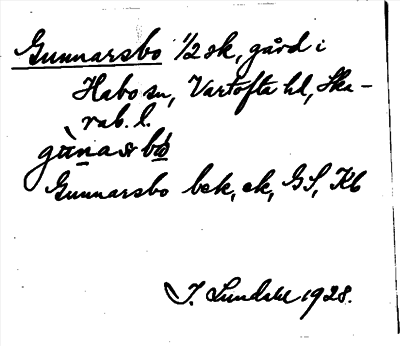 Gunnarsbo 1/2 sk, gård i
Habo sn, Vartofta hd, Ska-
rab. l.
Gunnarsbo bek, ek, GS, Kb
I. Lundahl 1928.